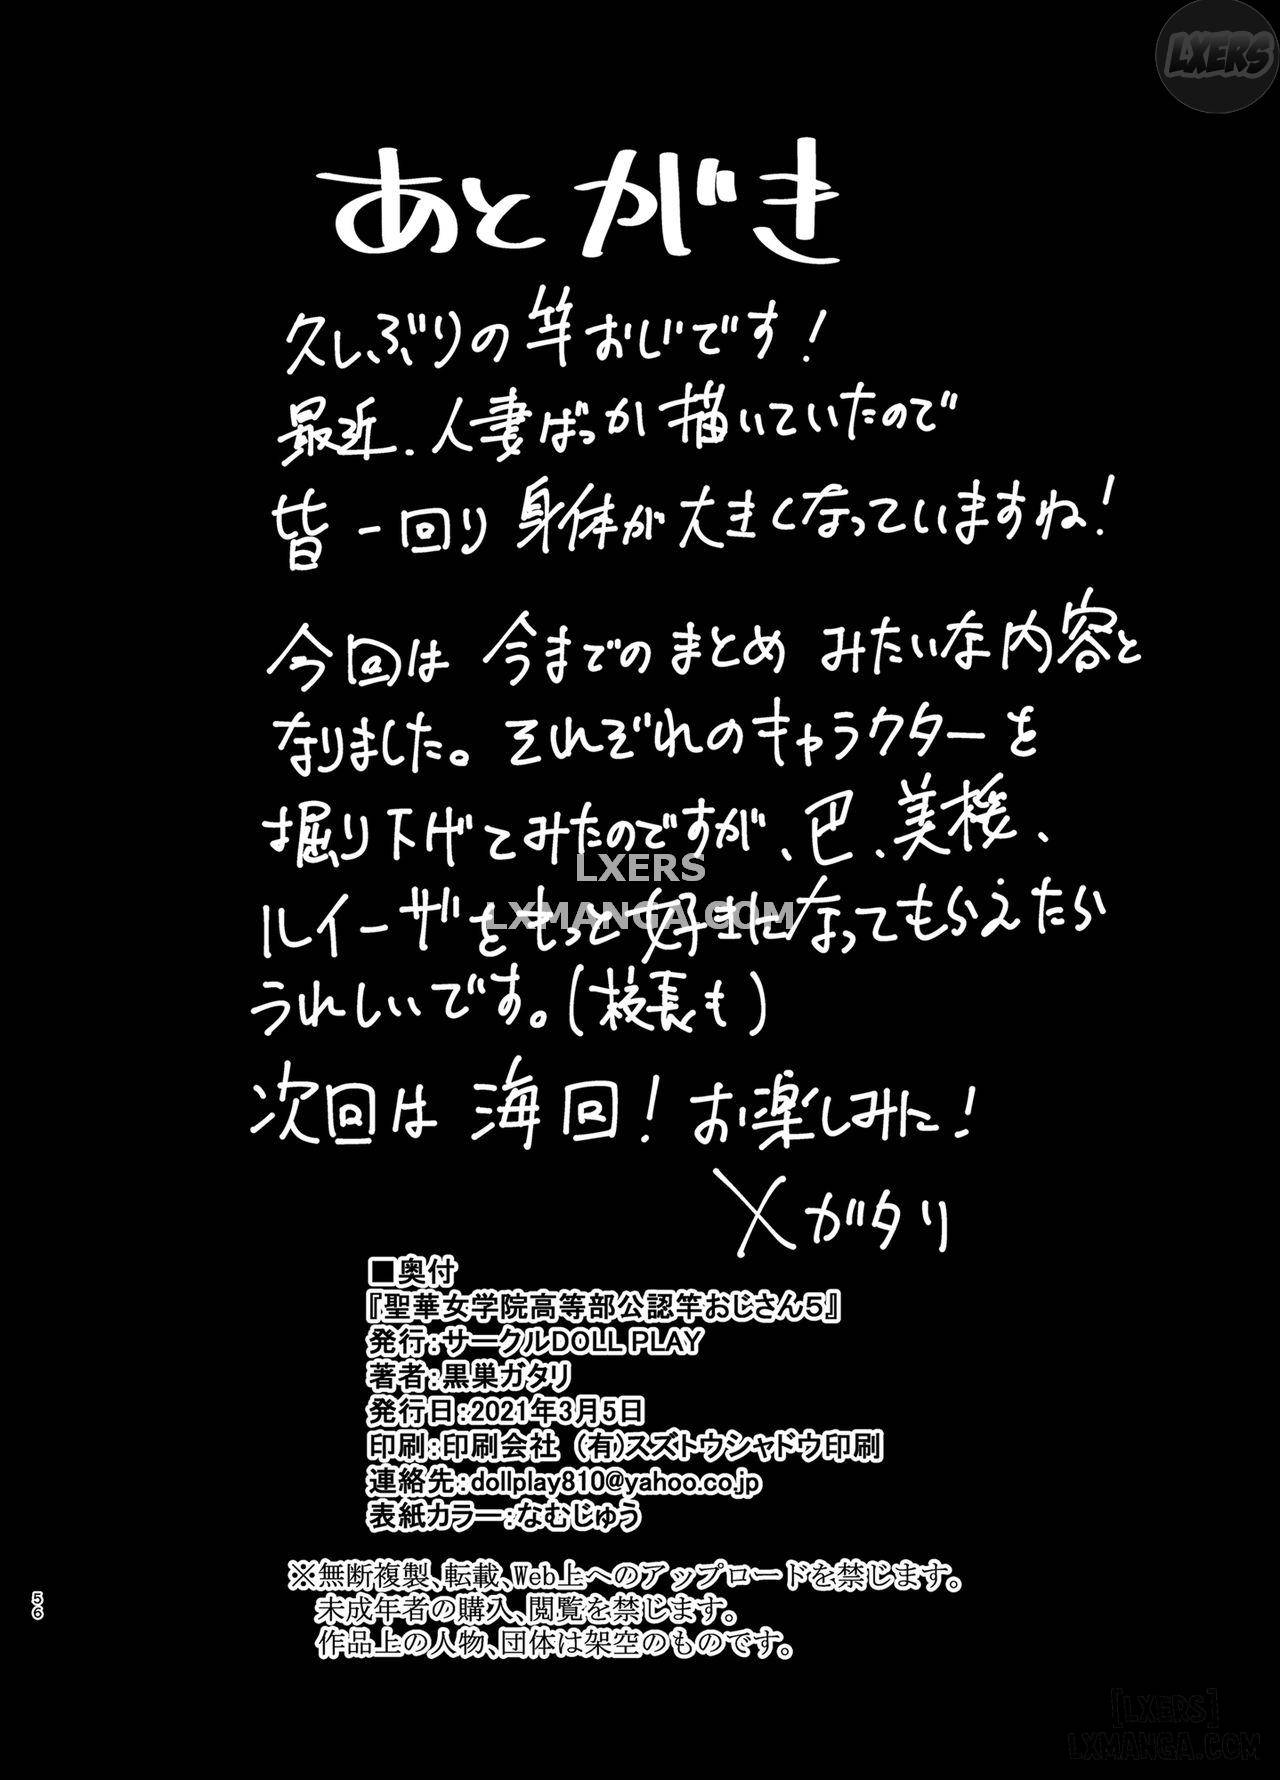 LXERS
あとがき
久しぶりの竿おじです！
最近、人妻ばっか描いていたので
皆一回り身体が大きくなっていますね！
今回は今までのまとめみたいな内容と
なりました。それぞれのキャラクターを
掘り下げてみたのですが、巴、美桜、
LXERS
ルイーザをもっと好きになってもらえたら
LXMANGA.COM
うれしいです。(校長も)
次回は海回！お楽しみに！
メガタリ
■奥付
『聖華女学院高等部公認竿おじさん5』
発行：サークルDOLL PLAY
著者：黒巣ガタリ
発行日：2021年3月5日
印刷：印刷会社 (有)スズトウシャドウ印刷
連絡先：dollplay810@yahoo.co.jp
表紙カラー：なむじゅう
※無断複製、転載、Web上へのアップロードを禁じます。
未成年者の購入、閲覧を禁じます。
作品上の人物、団体は架空のものです。
56
[LXERS]
LXMANGA.COM